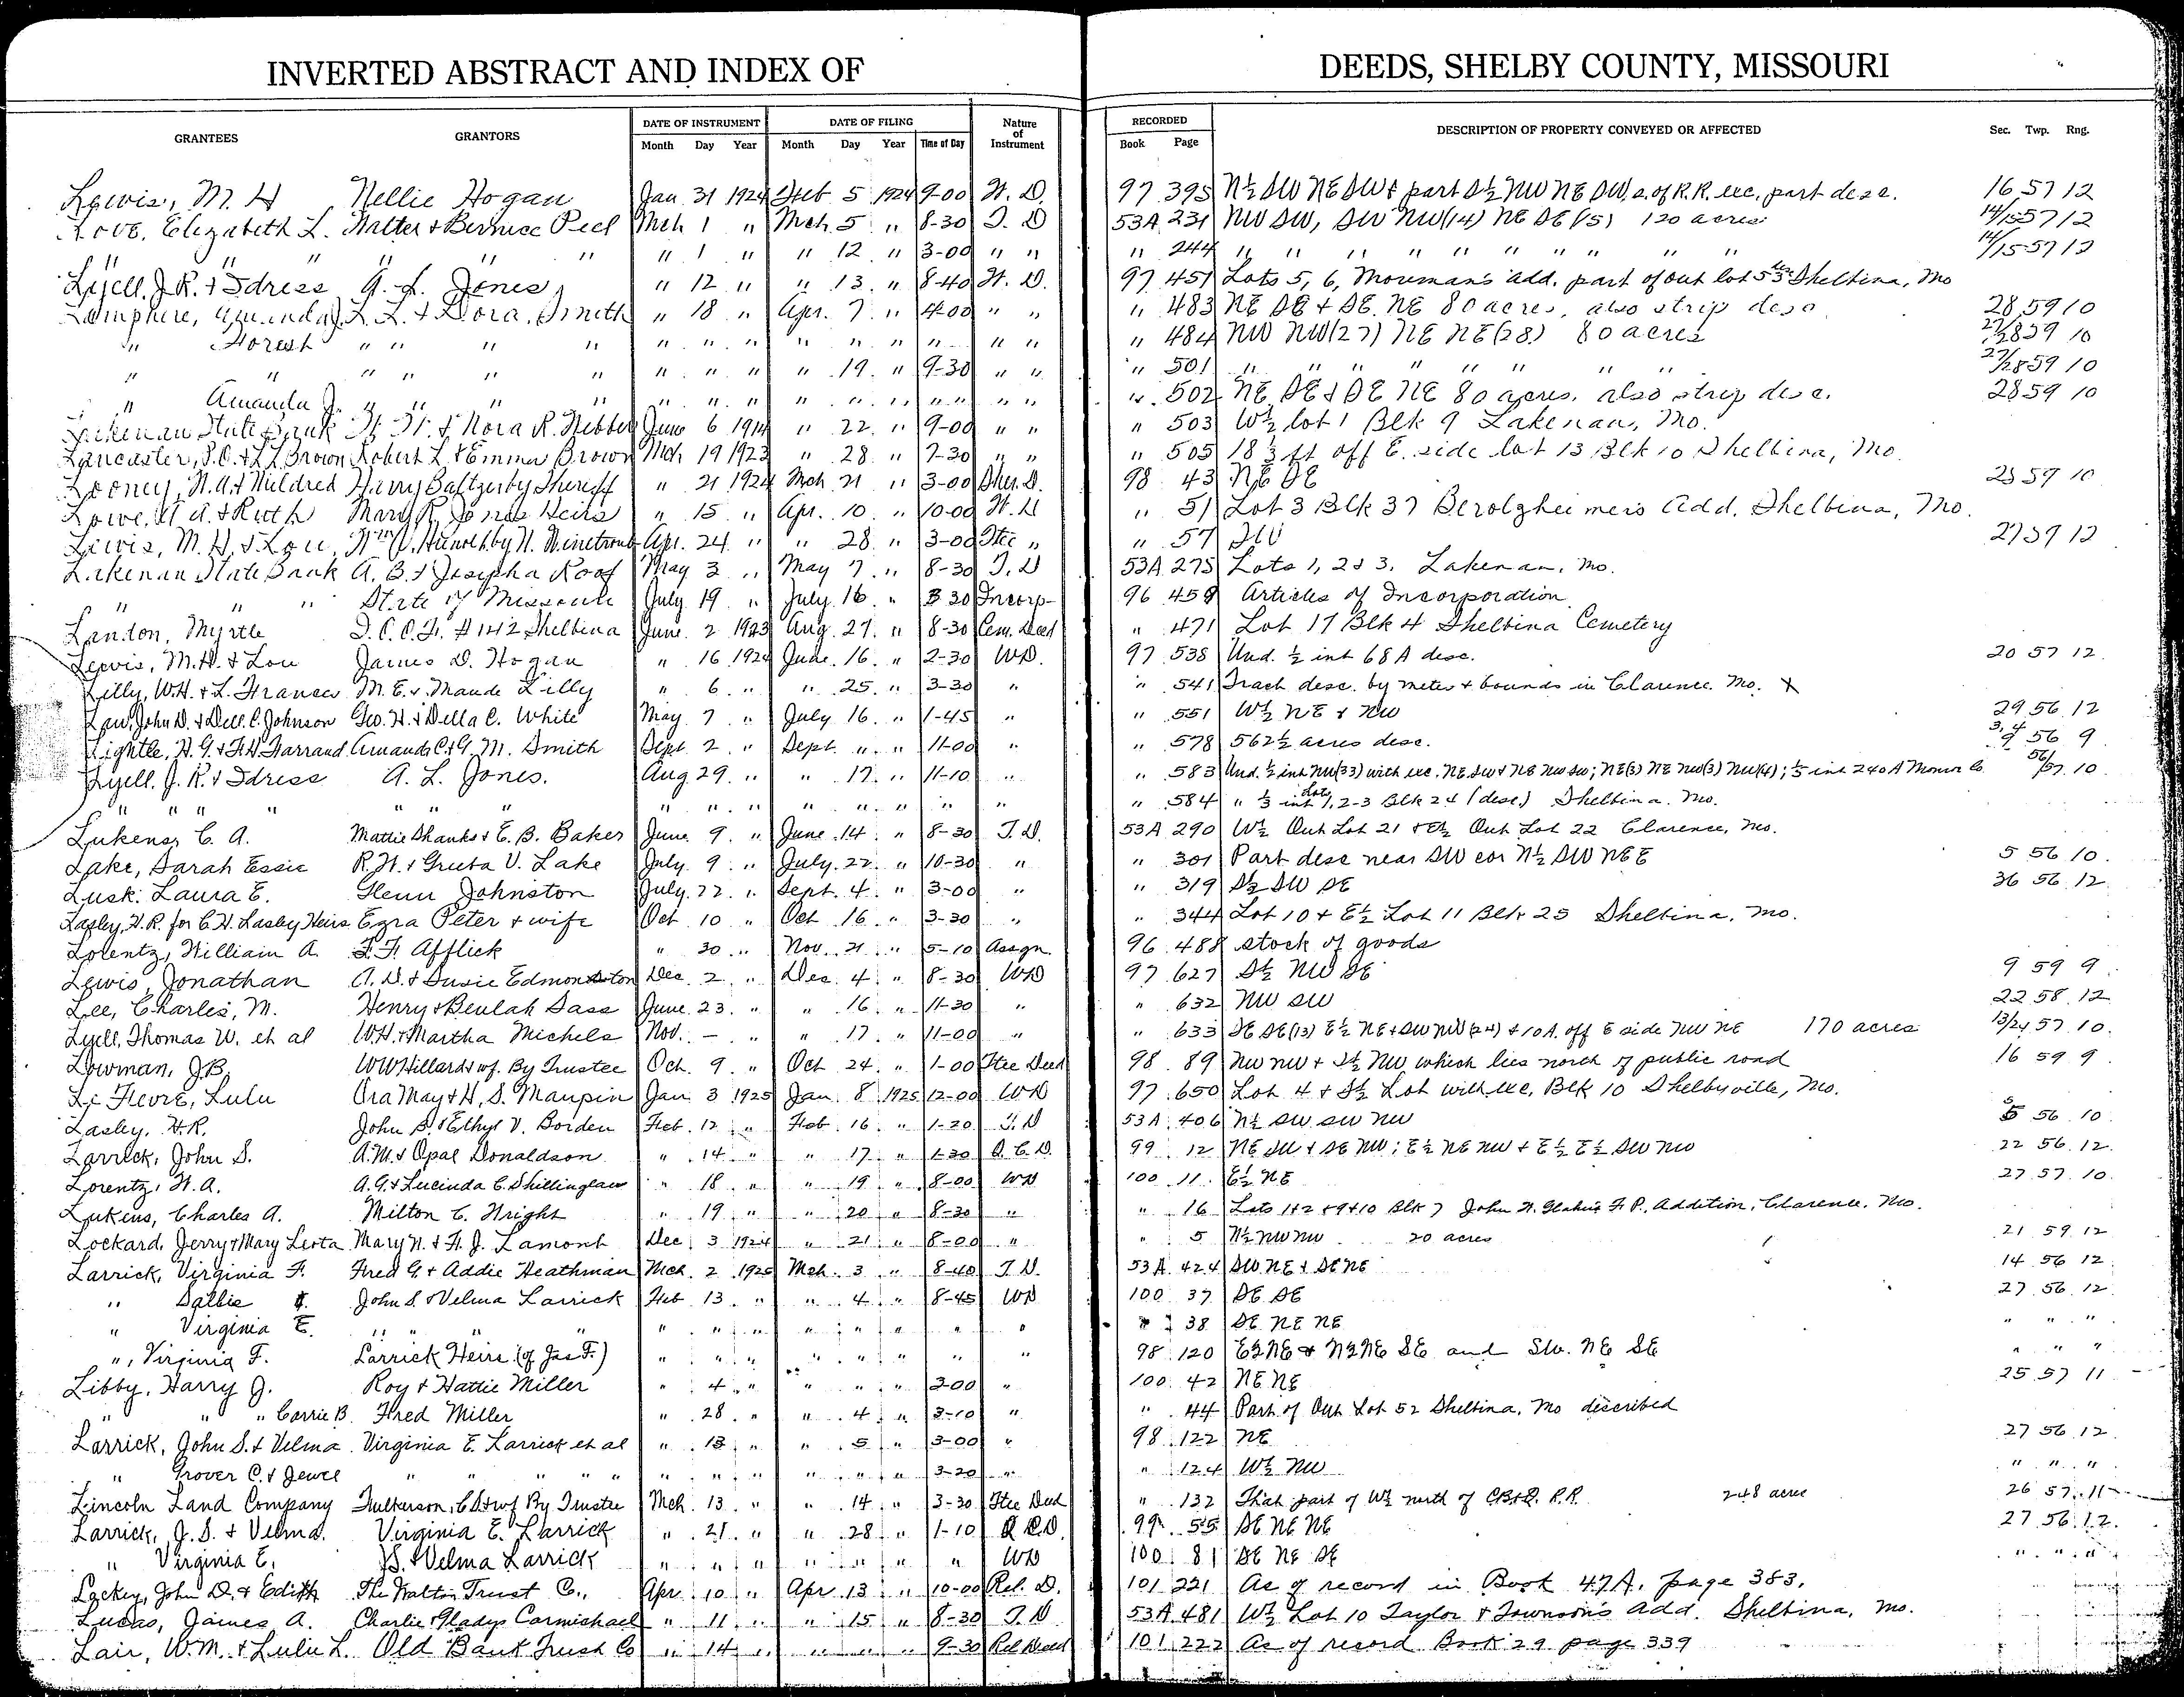 INVERTED ABSTRACT AND INDEX OF DEEDS, SHELBY COUNTY, MISSOURI
GRANTEES GRANTORS DATE OF INSTRUMENT Month Day Year DATE OF FILING Month Day Year Time of Day Nature of Instrument RECORDED Book Page DESCRIPTION OF PROPERTY CONVEYED OR AFFECTED Sec. Twp. Rng.
Lewis, M. H Nellie Hogan Jan 31 1924 Feb 5 1924 9-00 W. D. 97 395 N½ SW NE SW & part S½ NW NE SW, s. of R.R. exc. part desc. 16 57 12
Love, Elizabeth L. Walter & Bernice Peel Mch 1 " Mch. 5 " 8-30 T. D 53A 231 NW SW, SW NW (14) NE SE (15) 120 acres 14/15 57 12
" " " " " " 1 " " 12 " 3-00 " " " 244 " " " " " " " " " " 14/15 57 12
Lyell, J. R. & Idress A. L. Jones " 12 " " 13 " 8-40 W. D. 97 451 Lots 5, 6, add. part of out lot 53 Shelbina, Mo
Lamphere, Amanda J. L. L. & Dora Smith " 18 " Apr. 7 " 4-00 " " " 483 NE SE & SE NE 80 acres, also strip desc 28 59 10
" Forest " " " " " " " " " " " " " " 484 NW NW (27) NE NE (28) 80 acres 27/28 59 10
" " " " " " " " " " 19 " 9-30 " " " 501 " " " " " " 27/28 59 10
" Amanda J. " " " " " " " " " " " " " " 502 NE SE & SE NE 80 acres, also strip desc. 28 59 10
Lakenan State Bank & Nora R. June 6 1914 " 22 " 9-00 " " " 503 W½ lot 1 Blk 9 Lakenan, Mo.
Lancaster, & L. L. Brown Robert L. & Emma Brown Mch 19 1923 " 28 " 7-30 " " " 505 18⅓ ft off E. side lot 13 Blk 10 Shelbina, Mo
Looney, W. A. & Mildred Harry Baltzer by Sheriff " 21 1924 Mch 21 " 3-00 Sher. D. 98 43 NE SE 23 59 10
Lowe, A. & Ruth Mary R. Jones Heirs " 15 " Apr. 10 " 10-00 W. D " 51 Lot 3 Blk 37 Berolzheimers Add. Shelbina, Mo.
Lewis, M. H. & Lou by Apr. 24 " " 28 " 3-00 Ttee " " 57 SW 27 59 12
Lakenan State Bank A. B. & Josepha Roof May 3 " May 7 " 8-30 T. D 53A 275 Lots 1, 2 & 3, Lakenan, Mo.
" " " State of Missouri July 19 " July 16 " 3 30 Incorp- 96 459 Articles of Incorporation
Landon, Myrtle I. O. O. F. #142 Shelbina June 2 1923 Aug. 27 " 8-30 Cem. Deed " 471 Lot 17 Blk 4 Shelbina Cemetery
Lewis, M. H. & Lou James D. Hogan " 16 1924 June 16 " 2-30 WD. 97 538 Und. ½ int 68 A desc. 20 57 12
Lilly, W.H. & L. Frances M. E. & Maude Lilly " 6 " " 25 " 3-30 " " 541 Tract desc. by metes & bounds in Clarence, Mo. X
Law, John D. & Dell C. Johnson Geo. H. & Della C. White May 7 " July 16 " 1-45 " " 551 W½ NE & NW 29 56 12
Lightle, H. G. & F. H. Farrand Amanda C. & G. M. Smith Sept 2 " Sept " " 11-00 " " 578 562½ acres desc. 3, 4 9 56 9
Lyell, J. R. & Idress A. L. Jones. Aug 29 " " 17 " 11-10 " " 583 Und. ½ int NW (33) with exc. NE SW & NE NW SW; NE (3) NE NW (3) NW (4); ⅓ int 240 A Monroe Co. 56/57 10
" " " " " " " " " " " " " " " " 584 " ⅓ int Lots 1, 2-3 Blk 24 (desc.) Shelbina, Mo.
Lukens, C. A. Mattie Shanks & C. B. Baker June 9 " June 14 " 8-30 T. D. 53A 290 W½ Out Lot 21 & E½ Out Lot 22 Clarence, Mo.
Lake, Sarah Essie R. H. & Greeta V. Lake July 9 " July 22 " 10-30 " " 301 Part desc near SW cor N½ SW NE E 5 56 10
Lusk, Laura E. Glenn Johnston July 22 " Sept. 4 " 3-00 " " 319 S½ SW SE 36 56 12
Lasley, H. R. for C. H. Lasley Heirs Ezra Peter & wife Oct 10 " Oct 16 " 3-30 " " 344 Lot 10 & E½ Lot 11 Blk 25 Shelbina, Mo.
Lorentz, William A. F. F. Afflick " 30 " Nov. 21 " 5-10 Assgn. 96 488 stock of goods
Lewis, Jonathan A. D. & Susie Edmonston Dec. 2 " Dec. 4 " 8-30 WD 97 627 S½ NW SE 9 59 9
Lee, Charles, M. Henry & Beulah Sass June 23 " " 16 " 11-30 " " 632 NW SW 22 58 12
Lyell, Thomas W. et al W.H. & Martha Michels Nov. - " " 17 " 11-00 " " 633 SE SE (13) E½ NE & SW NW (24) & 10 A. off E side NW NE 170 acres 13/24 57 10
Lowman, J.B. WW Hillard & wf. By Trustee Oct. 9 " Oct 24 " 1-00 Ttee Deed 98 89 NW NW & S½ NW which lies north of public road 16 59 9
Le Fevre, Lulu Ora May & H. S. Maupin Jan 3 1925 Jan. 8 1925 12-00 WD 97 650 Lot 4 & S½ Lot with exc. Blk 10 Shelbyville, Mo.
Lasley, H.R. John B. & Ethyl V. Borden Feb. 12 " Feb. 16 " 1-20 T. D 53A 406 N½ SW SW NW 5 56 10
Larrick, John S. A.M. & Opal Donaldson " 14 " " 17 " 1-30 Q. C. D. 99 12 NE SW & SE NW; E½ NE NW & E½ E½ SW NW 22 56 12
Lorentz, W. A. A. G. & Lucinda C. Shillinglaw " 18 " " 19 " 8-00 WD 100 11 E½ NE 27 57 10
Lukens, Charles A. Milton C. Wright " 19 " " 20 " 8-30 " " 16 Lots 1 & 2 & 9 & 10 Blk 7 John F. P. Addition, Clarence, Mo.
Lockard, Jerry & Mary Leota Mary N. & F. J. Lamont Dec. 3 1924 " 21 " 8-00 " " 5 N½ NW NW 20 acres 21 59 12
Larrick, Virginia F. Fred G. & Addie Heathman Mch. 2 1925 Mch. 3 " 8-40 T. D. 53A 424 SW NE & SE NE 14 56 12
" Sallie John S. & Velma Larrick Feb 13 " " 4 " 8-45 WD 100 37 SE SE 27 56 12
" Virginia E. " " " " " " " " " " " " 38 SE NE NE " " "
", Virginia F. Larrick Heirs (of Jas F.) " " " " " " " " 98 120 E½ NE & N½ NE SE and SW. NE SE " " "
Libby, Harry J. Roy & Hattie Miller " 4 " " " " 3-00 " 100 42 NE NE 25 57 11
" " " Carrie B. Fred Miller " 28 " " 4 " 3-10 " " 44 Part of Out Lot 52 Shelbina, Mo described
Larrick, John S. & Velma Virginia E. Larrick et al " 13 " " 5 " 3-00 " 98 122 NE 27 56 12
" Grover C. & Jewel " " " " " " " " " " " 3-20 " " 124 W½ NW " " "
Lincoln Land Company Fulkerson, C D & wf By Trustee Mch. 13 " " 14 " 3-30 Ttee Deed " 132 That part of W½ north of CB&Q. R.R. 248 acres 26 57 11
Larrick, J. S. & Velma. Virginia E. Larrick " 21 " " 28 " 1-10 Q C D. 99 55 SE NE NE 27 56 12
" Virginia E. J.S. & Velma Larrick " " " " " " " WD 100 81 SE NE SE " " "
Lackey, John D. & Edith The Walton Trust Co., Apr 10 " Apr 13 " 10-00 Rel. D. 101 221 As of record in Book 47A, page 383.
Lucas, James A. Charlie & Gladys Carmichael " 11 " " 15 " 8-30 T. D 53A 481 W½ Lot 10 Taylor & Townson's Add. Shelbina, Mo.
Lair, W.M. & Lulu L. Old Bank Trust Co " 14 " " " " 9-30 Rel Deed 101 222 As of record Book 29 page 339